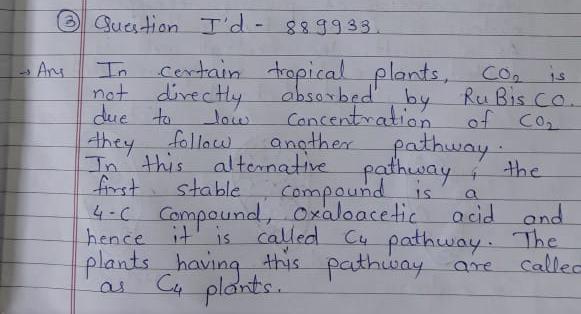 ③ Question I'd - 889933.
→ Ans In certain tropical plants, CO2 is
not directly absorbed by RuBisCO.
due to low concentration of CO2
they follow another pathway.
In this alternative pathway, the
first stable compound is a
4-C compound, oxaloacetic acid and
hence it is called C4 pathway. The
plants having this pathway are called
as C4 plants.